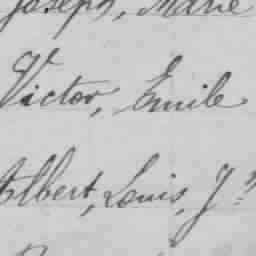 Joseph, Marie
Victor, Emile
Albert, Louis, J.